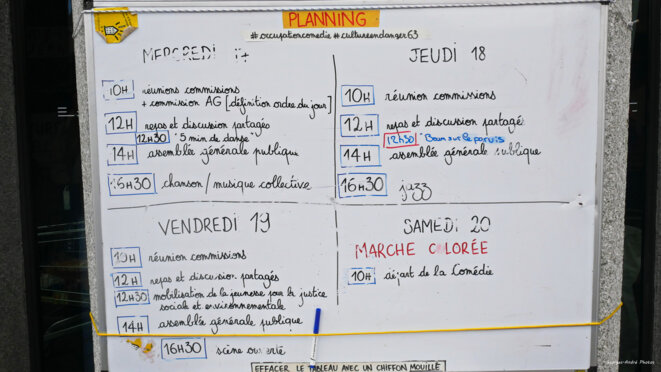 PLANNING
#occupationcomedie #cultureendanger63
MERCREDI 17
10H réunions commissions
+ commission AG [définition ordre du jour]
12H repas et discussion partagés
12H30 * 5 min de danse
14H assemblée générale publique
16H30 chanson / musique collective
JEUDI 18
10H réunion commissions
12H repas et discussion partagé
12H30 * Boum sur le parvis
14H assemblée générale publique
16H30 jazz
VENDREDI 19
10H réunion commissions
12H repas et discussion partagés
12H30 mobilisation de la jeunesse pour la justice
sociale et environnementale
14H assemblée générale publique
16H30 scène ouverte
SAMEDI 20
MARCHE COLORÉE
10H départ de la Comédie
EFFACER LE TABLEAU AVEC UN CHIFFON MOUILLÉ